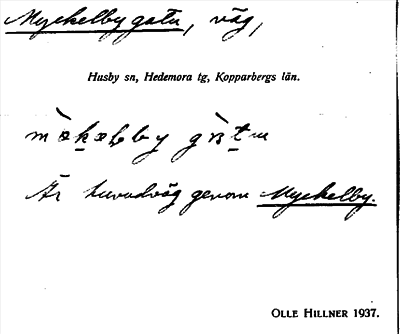 Myckelby gatu, väg,
Husby sn, Hedemora tg, Kopparbergs län.
Är huvudväg genom Myckelby.
OLLE HILLNER 1937.